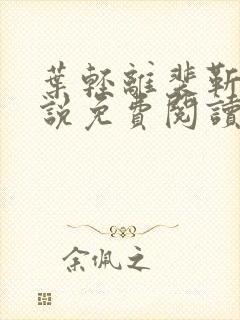 葉輕離裴靳
說免費閱讀
余佩之